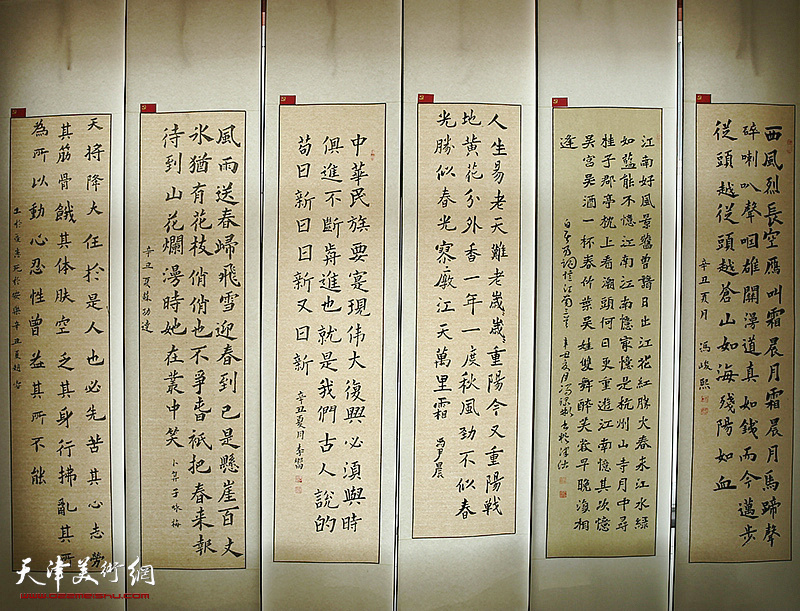 西風烈長空鴈叫霜晨月霜晨月馬蹄聲
碎喇叭聲咽雄關漫道真如鐵而今邁步
從頭越從頭越蒼山如海殘陽如血
辛丑夏月 馮峻熙
江南好風景舊曾諳日出江花紅勝火春來江水綠
如藍能不憶江南江南憶最憶是杭州山寺月中尋
桂子郡亭枕上看潮頭何日更重遊江南憶其次憶
吳宮吳酒一杯春竹葉吳娃雙舞醉芙蓉早晚復相
逢
白居易詞憶江南三首 辛丑夏月馮
人生易老天難老歲歲重陽今又重陽戰
地黃花分外香一年一度秋風勁不似春
光勝似春光寥廓江天萬里霜
丙尹晨
中華民族要實現偉大復興必須與時
俱進不斷前進也就是我們古人說的
茍日新日日新又日新
辛丑夏月
風雨送春歸飛雪迎春到已是懸崖百丈
冰猶有花枝俏俏也不爭春祇把春來報
待到山花爛漫時她在叢中笑
卜算子咏梅
辛丑夏 功達
天將降大任於是人也必先苦其心志勞
其筋骨餓其體膚空乏其身行拂亂其所
為所以動心忍性曾益其所不能
生於憂患死於安樂辛丑夏
天津美術網
www.022meishu.com